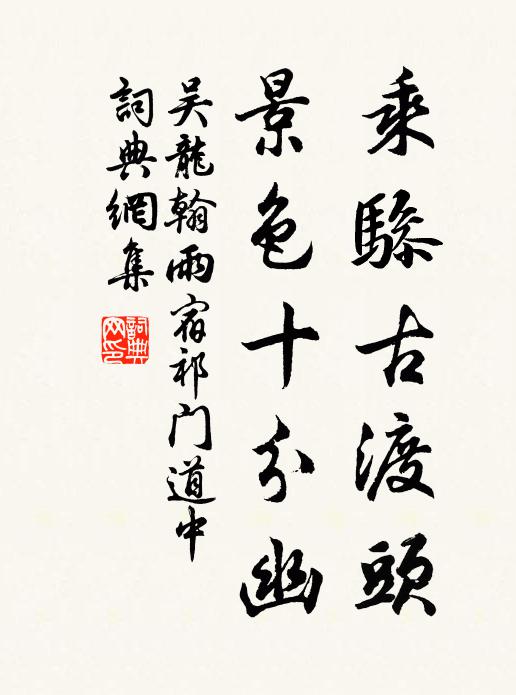 乘驂古渡頭
景色十分幽
吳龍翰雨宿祁门道中
詞典網集
詞典网印